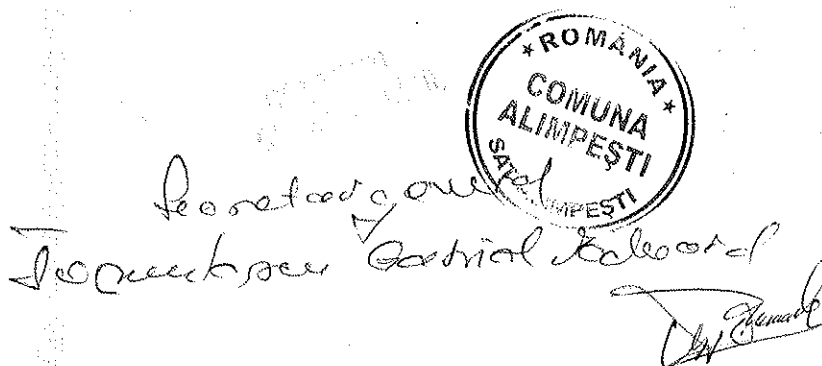 * ROMÂNIA *
COMUNA
ALIMPEȘTI
SAT ALIMPEȘTI
Secretar general
Gabriel Eduard